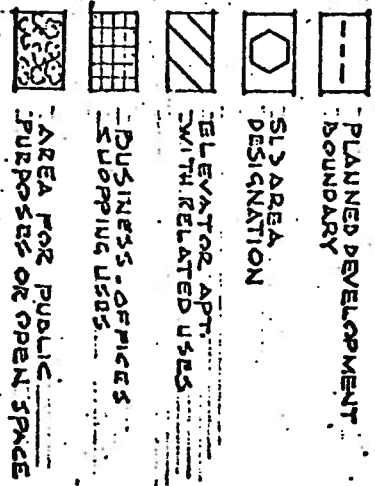 PLANNED DEVELOPMENT
BOUNDARY
AREA
DESIGNATION
ELEVATOR APT.
WITH RELATED USES
BUSINESS-OFFICES
SHOPPING USES
AREA FOR PUBLIC
PURPOSES OR OPEN SPACE